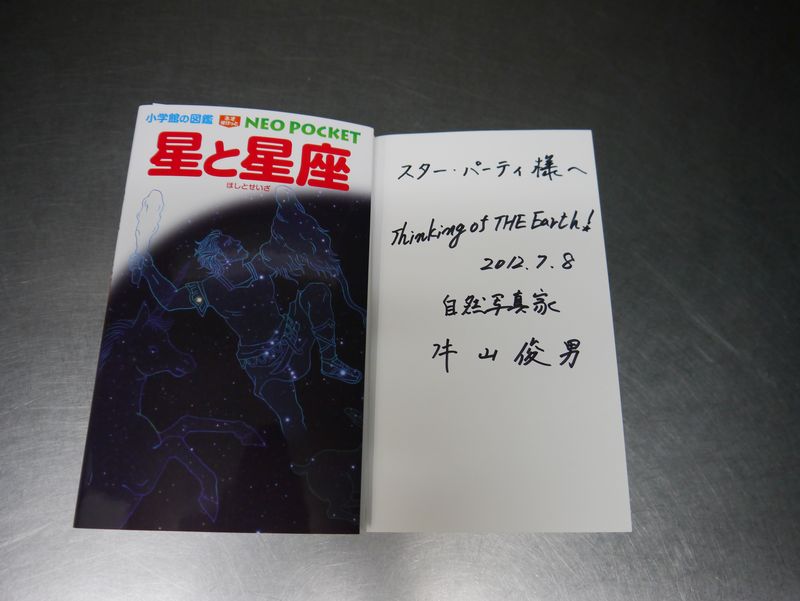 小学館の図鑑 ネオぽけっと NEO POCKET
星と星座
ほしとせいざ
スター・パーティ様へ
Thinking of THE Earth!
2012.7.8
自然写真家
牛山俊男